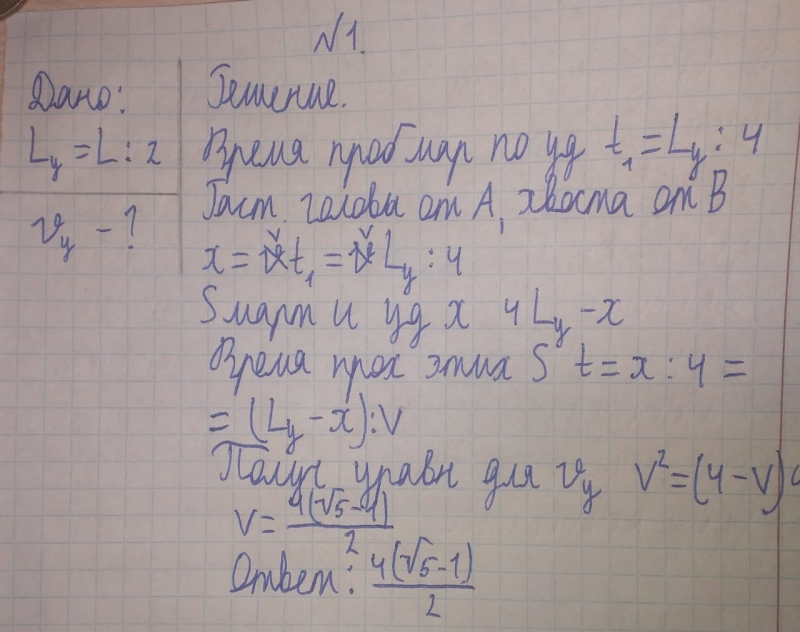 №1.
Дано:
Lу = L : 2
vу - ?
Решение.
Время проб мар по уд t₁ = Lу : 4
Раст. головы от А, хвоста от В
x = v t₁ = v Lу : 4
S март и уд x и Lу - x
Время прох этих S t = x : 4 =
= (Lу - x) : v
Получ уравн для vу v² = (4 - v)4
v = 4(√5 - 1) / 2
Ответ: 4(√5 - 1) / 2